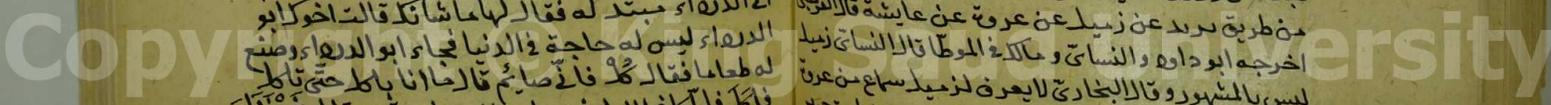 من طريق يزيد عن زميل عن عروة عن عايشة قال
اخرجه ابو داود والنسائي ومالك في الموطا قال النسائي زميل
ليس بالمشهور وقال البخاري لا يعرف لزميل سماع من عروة
الدرداء مبتذلة فقال لها ما شانك قالت اخوك ابو
الدرداء ليس له حاجة في الدنيا فجاء ابو الدرداء وصنع
له طعاما فقال كل فاني صايم قال ما انا باكل حتى تاكل